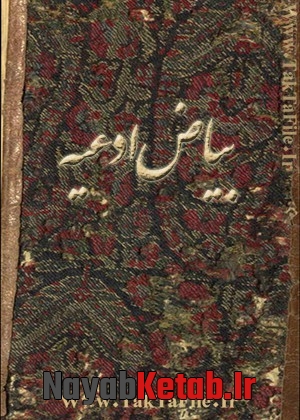 بیاض ادعیه
NayabKetab.Ir
WWW.TakFile.Ir
WWW.TakFile.Ir